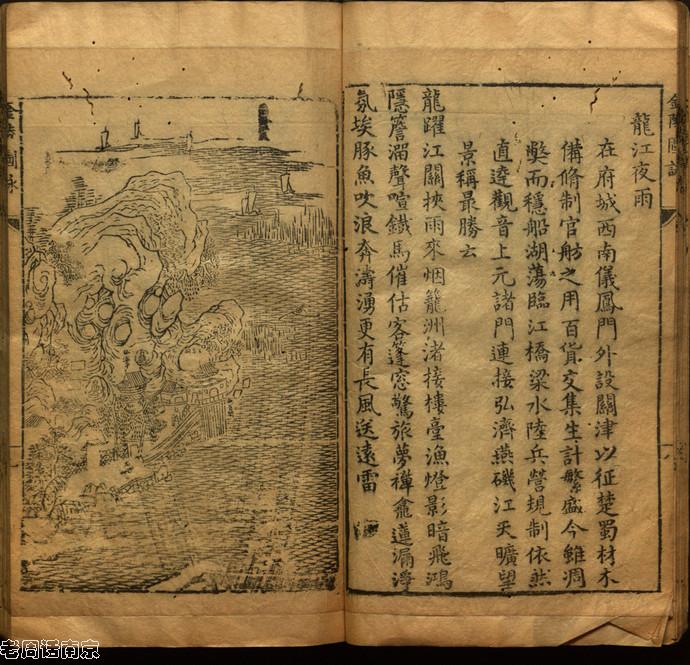 龍江夜雨
在府城西南儀鳳門外設關津以征楚蜀材木
備脩制官舫之用百貨交集生計繁盛今雖凋
獘而穩船湖蕩臨江橋梁水陸兵營規制依然
直達觀音上元諸門連接弘濟燕磯江天曠望
景稱最勝云
龍躍江關挾雨來烟籠洲渚接樓臺漁燈影暗飛鴻
隱簷溜聲喧鐵馬催估客篷窓驚旅夢禪龕蓮漏淨
氛埃豚魚吹浪奔濤湧更有長風送遠雷
老周话南京